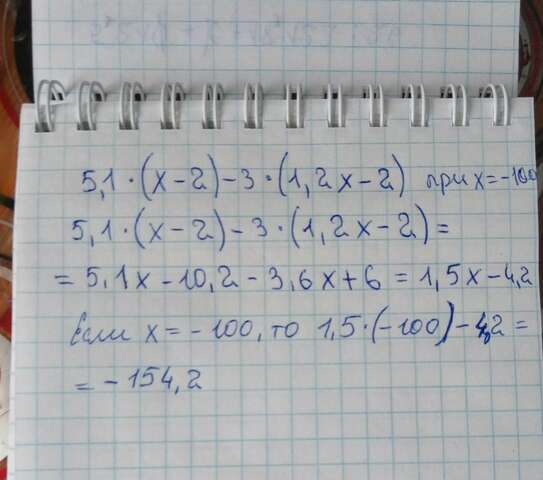 5,1·(x-2)-3·(1,2x-2) при x=-100
5,1·(x-2)-3·(1,2x-2)=
=5,1x-10,2-3,6x+6=1,5x-4,2
Если x=-100, то 1,5·(-100)-4,2=
=-154,2